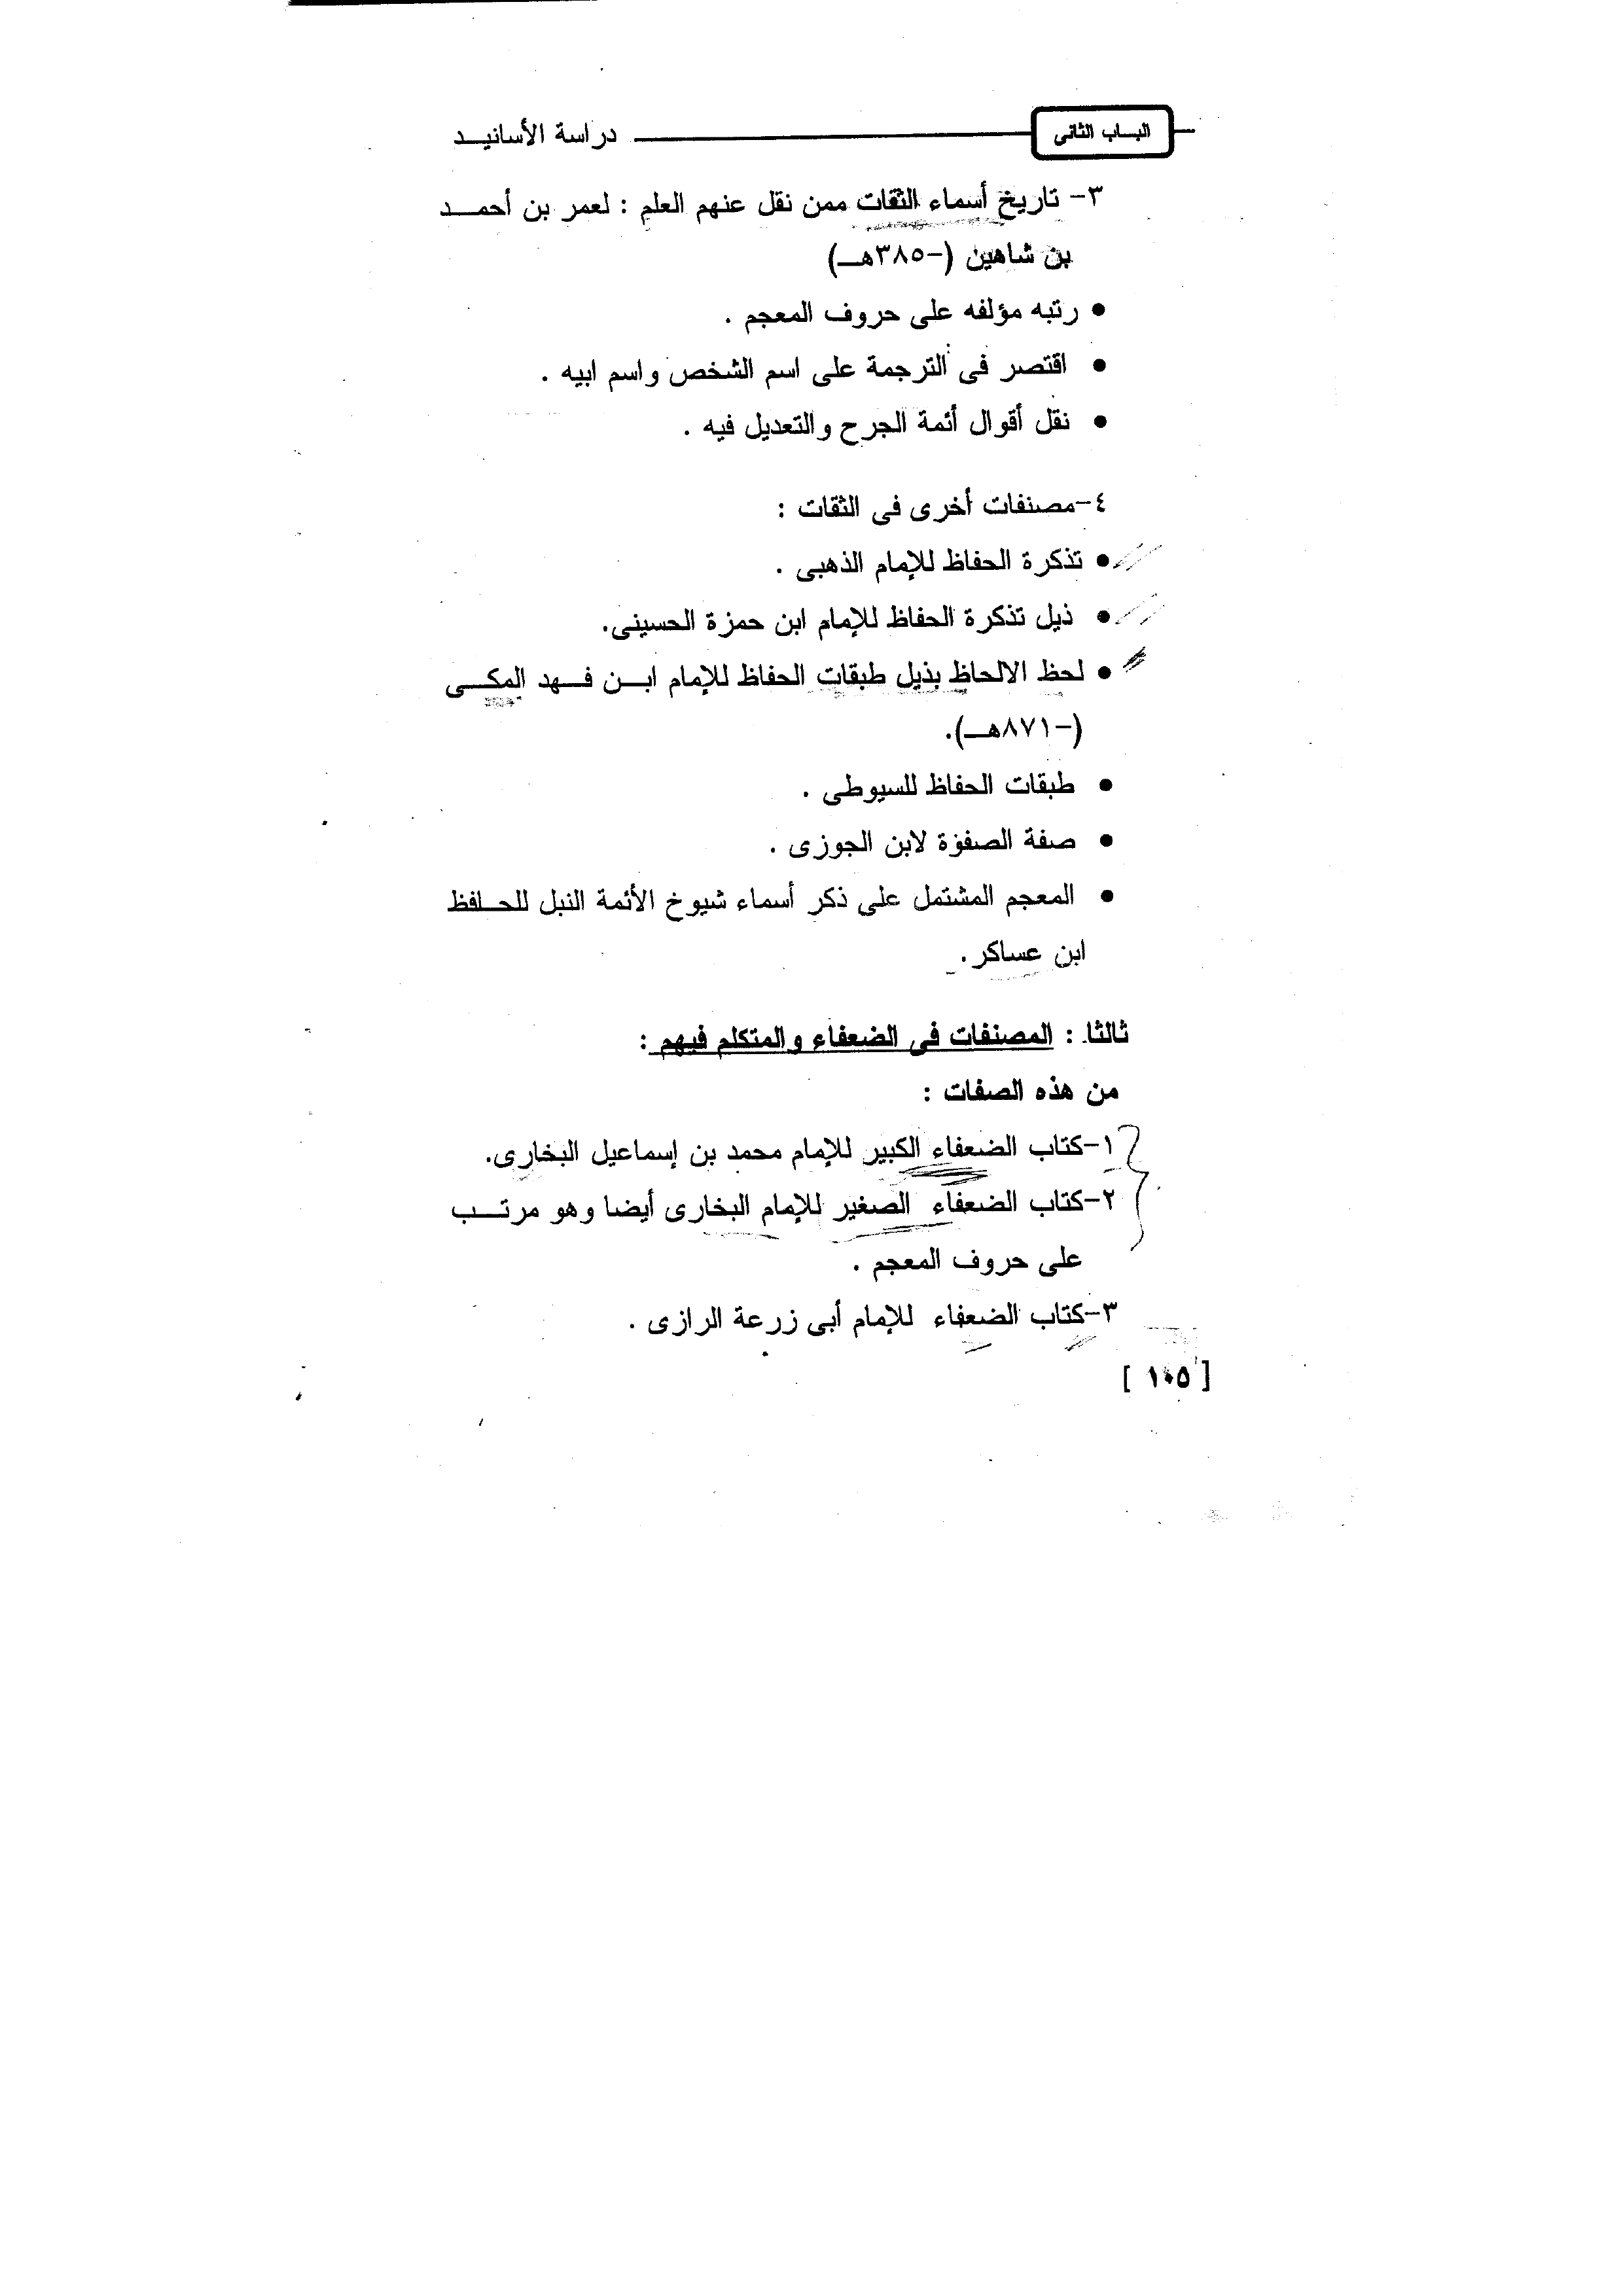 الباب الثانى دراسة الأسانيد
٣- تاريخ أسماء الثقات ممن نقل عنهم العلم : لعمر بن أحمد
بن شاهين (-٣٨٥هـ)
● رتبه مؤلفه على حروف المعجم .
● اقتصر فى الترجمة على اسم الشخص واسم ابيه .
● نقل أقوال أئمة الجرح والتعديل فيه .
٤-مصنفات أخرى فى الثقات :
● تذكرة الحفاظ للإمام الذهبى .
● ذيل تذكرة الحفاظ للإمام ابن حمزة الحسينى.
● لحظ الالحاظ بذيل طبقات الحفاظ للإمام ابن فهد المكى
(-٨٧١هـ).
● طبقات الحفاظ للسيوطى .
● صفة الصفوة لابن الجوزى .
● المعجم المشتمل على ذكر أسماء شيوخ الأئمة النبل للحافظ
ابن عساكر .
ثالثا : المصنفات فى الضعفاء والمتكلم فيهم :
من هذه الصفات :
١-كتاب الضعفاء الكبير للإمام محمد بن إسماعيل البخارى.
٢-كتاب الضعفاء الصغير للإمام البخارى أيضا وهو مرتب
على حروف المعجم .
٣-كتاب الضعفاء للإمام أبى زرعة الرازى .
[ ١٠٥ ]